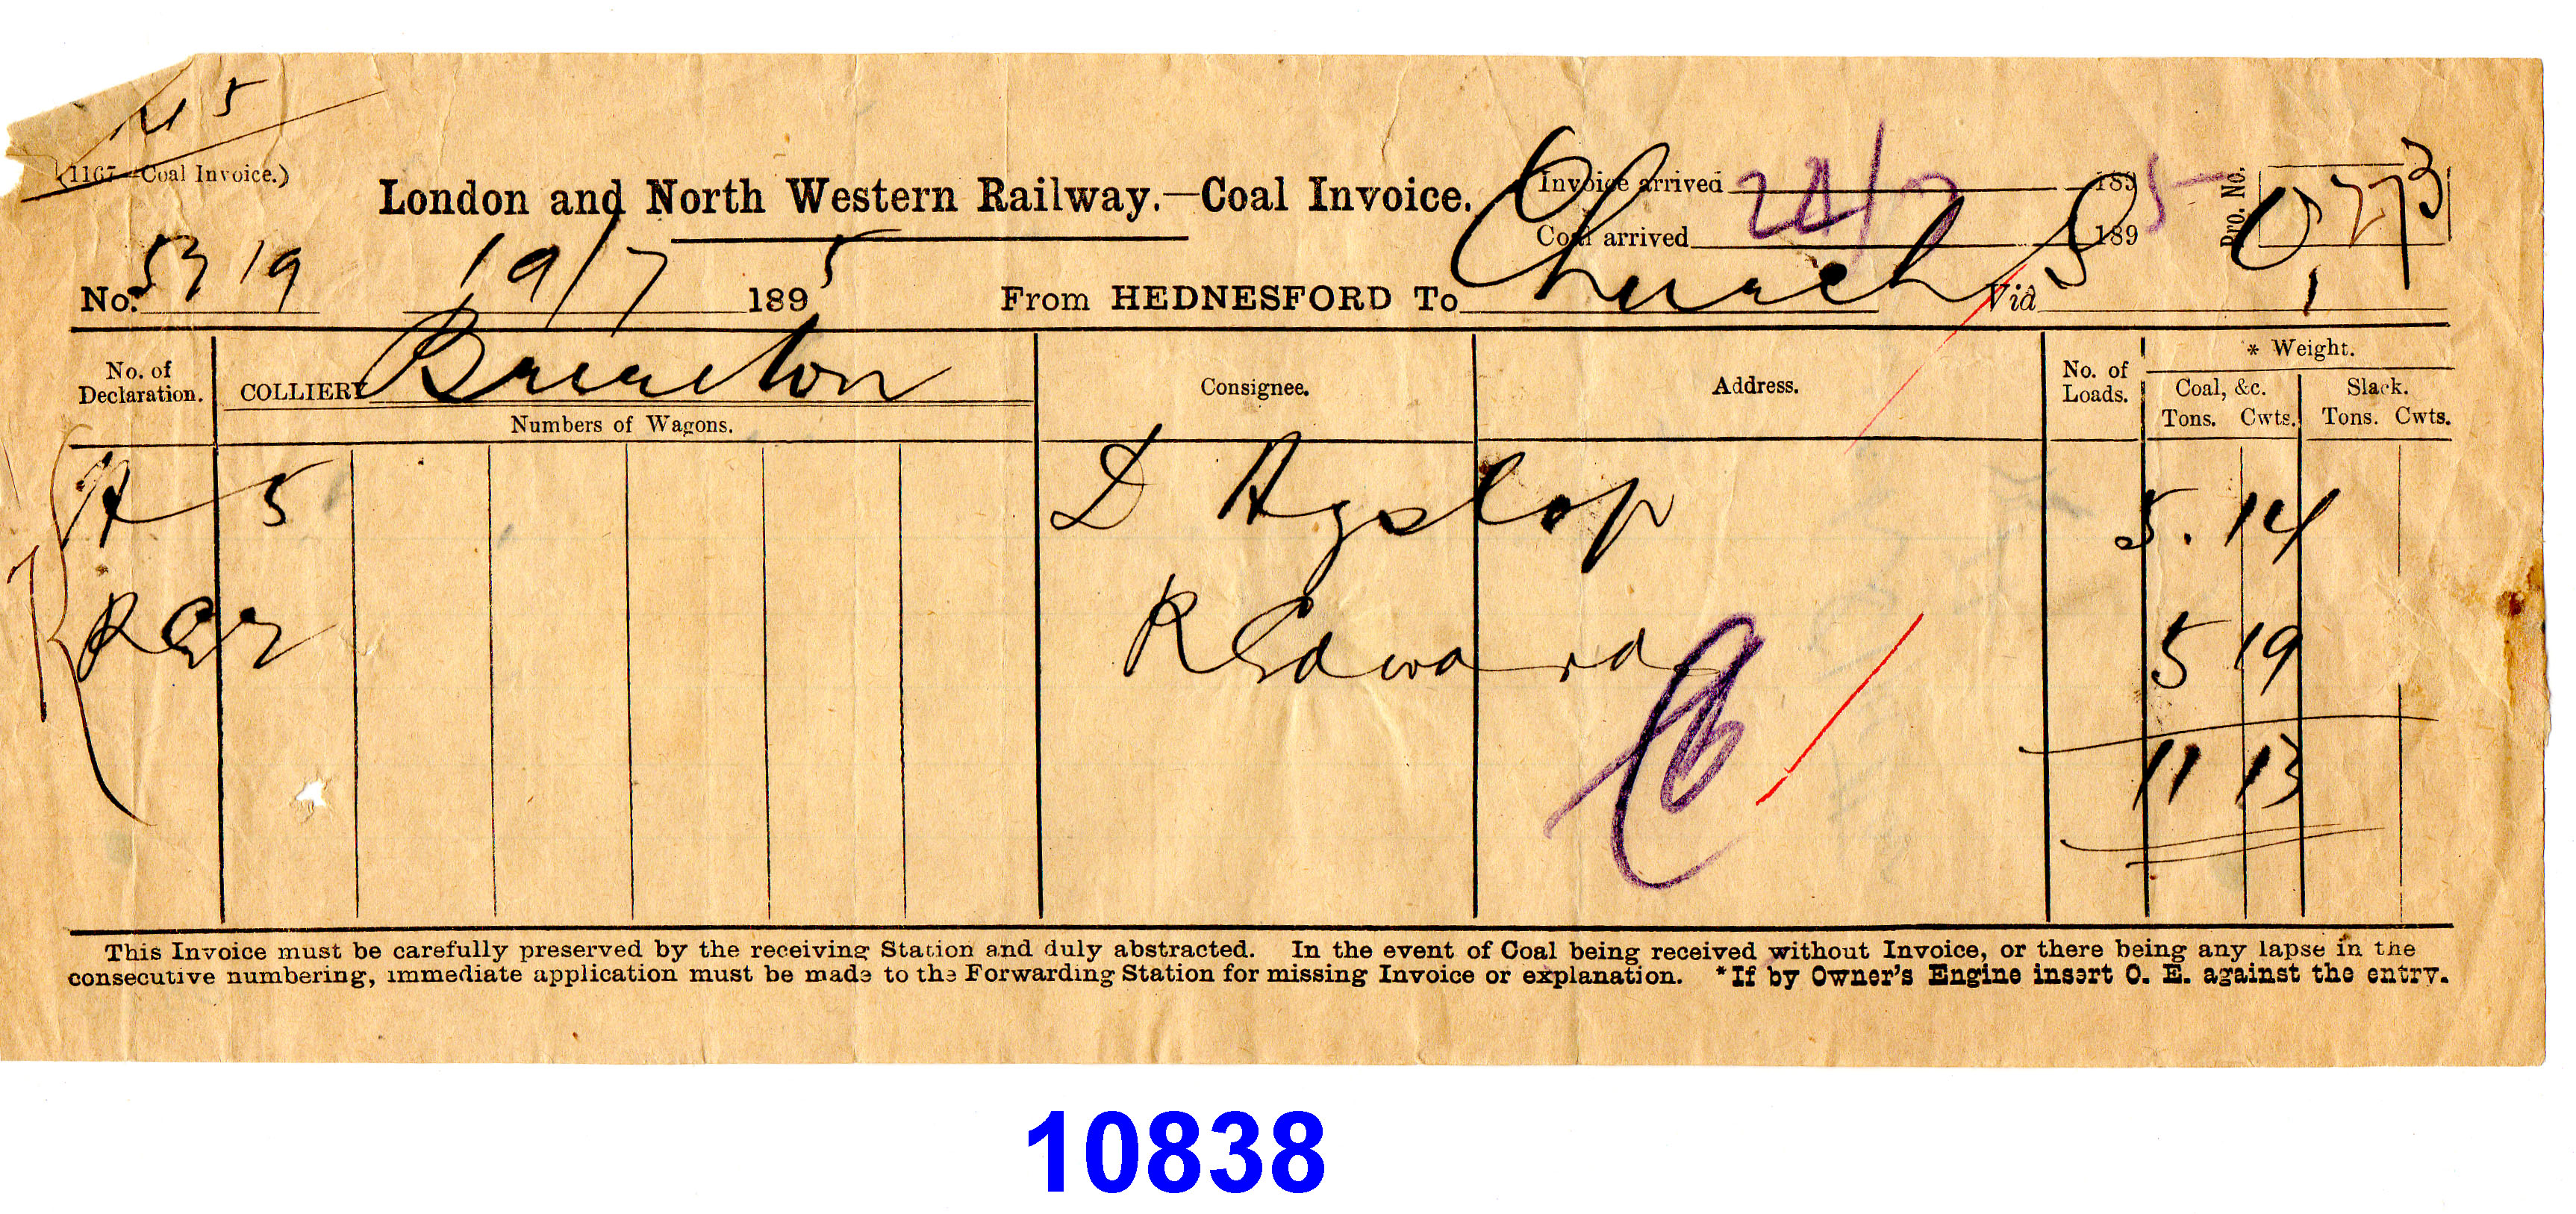 (1167—Coal Invoice.)
London and North Western Railway.—Coal Invoice.
Invoice arrived 24/7 1895
Coal arrived 189
Pro. No.
No. 5719 19/7 1895 From HEDNESFORD To Church S Viâ
No. of Declaration. COLLIERY Brereton Consignee. Address. No. of Loads. * Weight.
Numbers of Wagons. Coal, &c. Slack.
Tons. Cwts. Tons. Cwts.
H 5 D Hyslop 5. 14
R Edwards 5 19
11 13
This Invoice must be carefully preserved by the receiving Station and duly abstracted. In the event of Coal being received without Invoice, or there being any lapse in the
consecutive numbering, immediate application must be made to the Forwarding Station for missing Invoice or explanation. *If by Owner's Engine insert O. E. against the entry.
10838